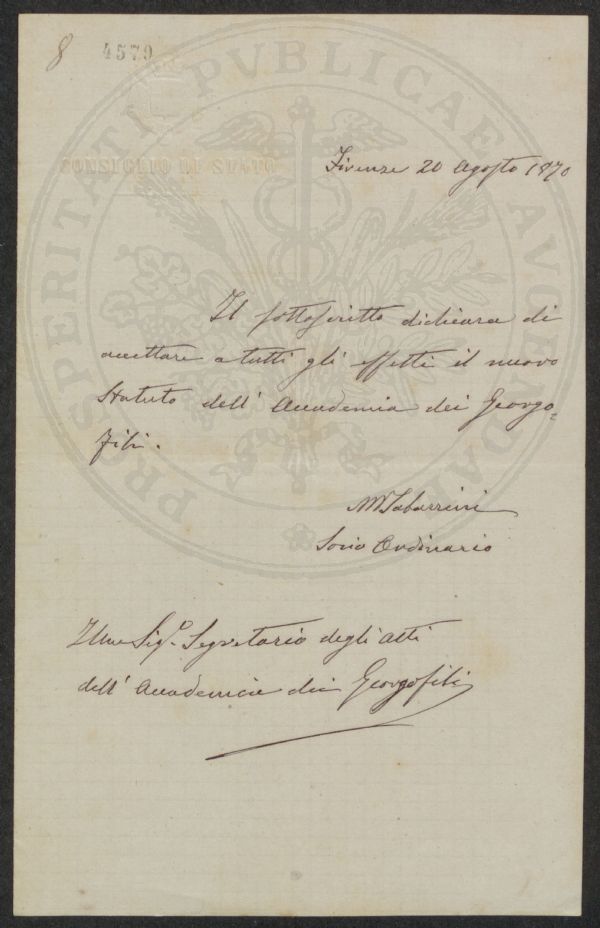 8 4579
CONSIGLIO DI STATO
PROSPERITATI PVBLICAE AVGENDAE
Firenze 20 Agosto 1870
Il sottoscritto dichiara di
accettare a tutti gli effetti il nuovo
Statuto dell' Accademia dei Georgo=
fili.
M Tabarrini
Socio Ordinario
Sig.o Segretario degli atti
dell' Accademia dei Georgofili